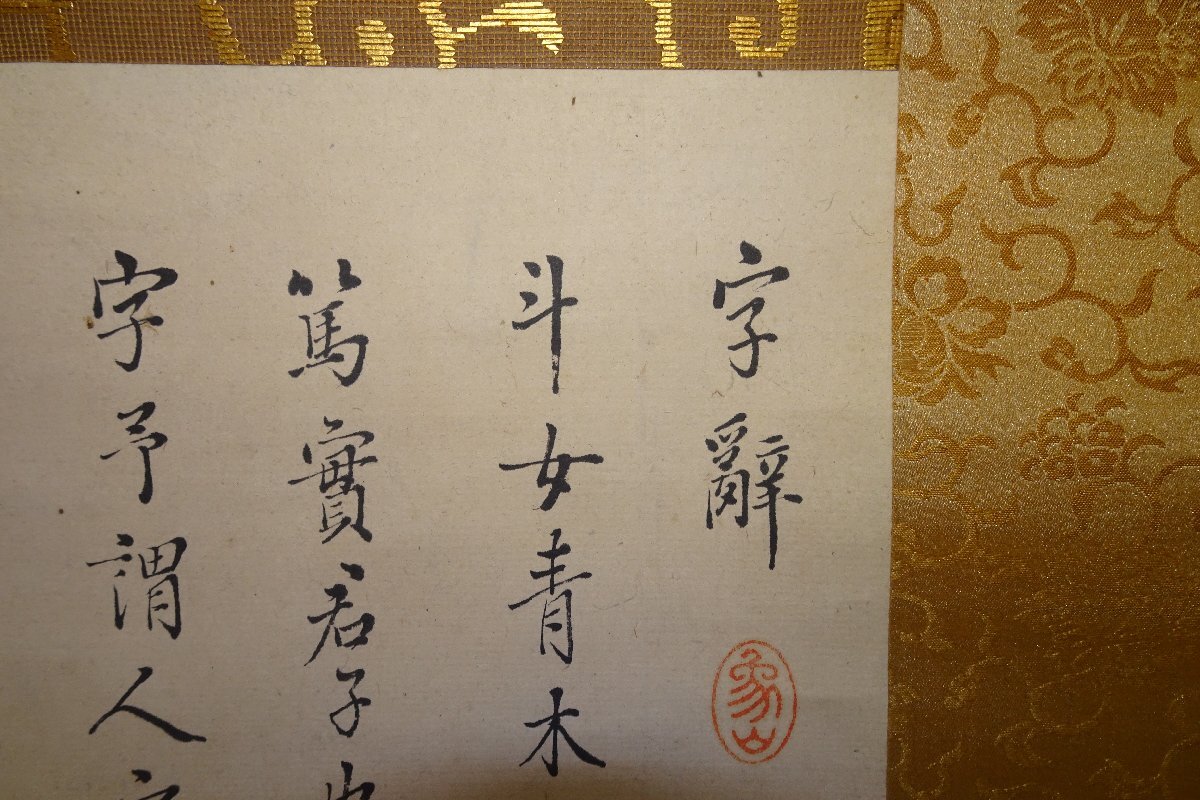 字辭
象山
斗女青木
篤實君子
字予謂人